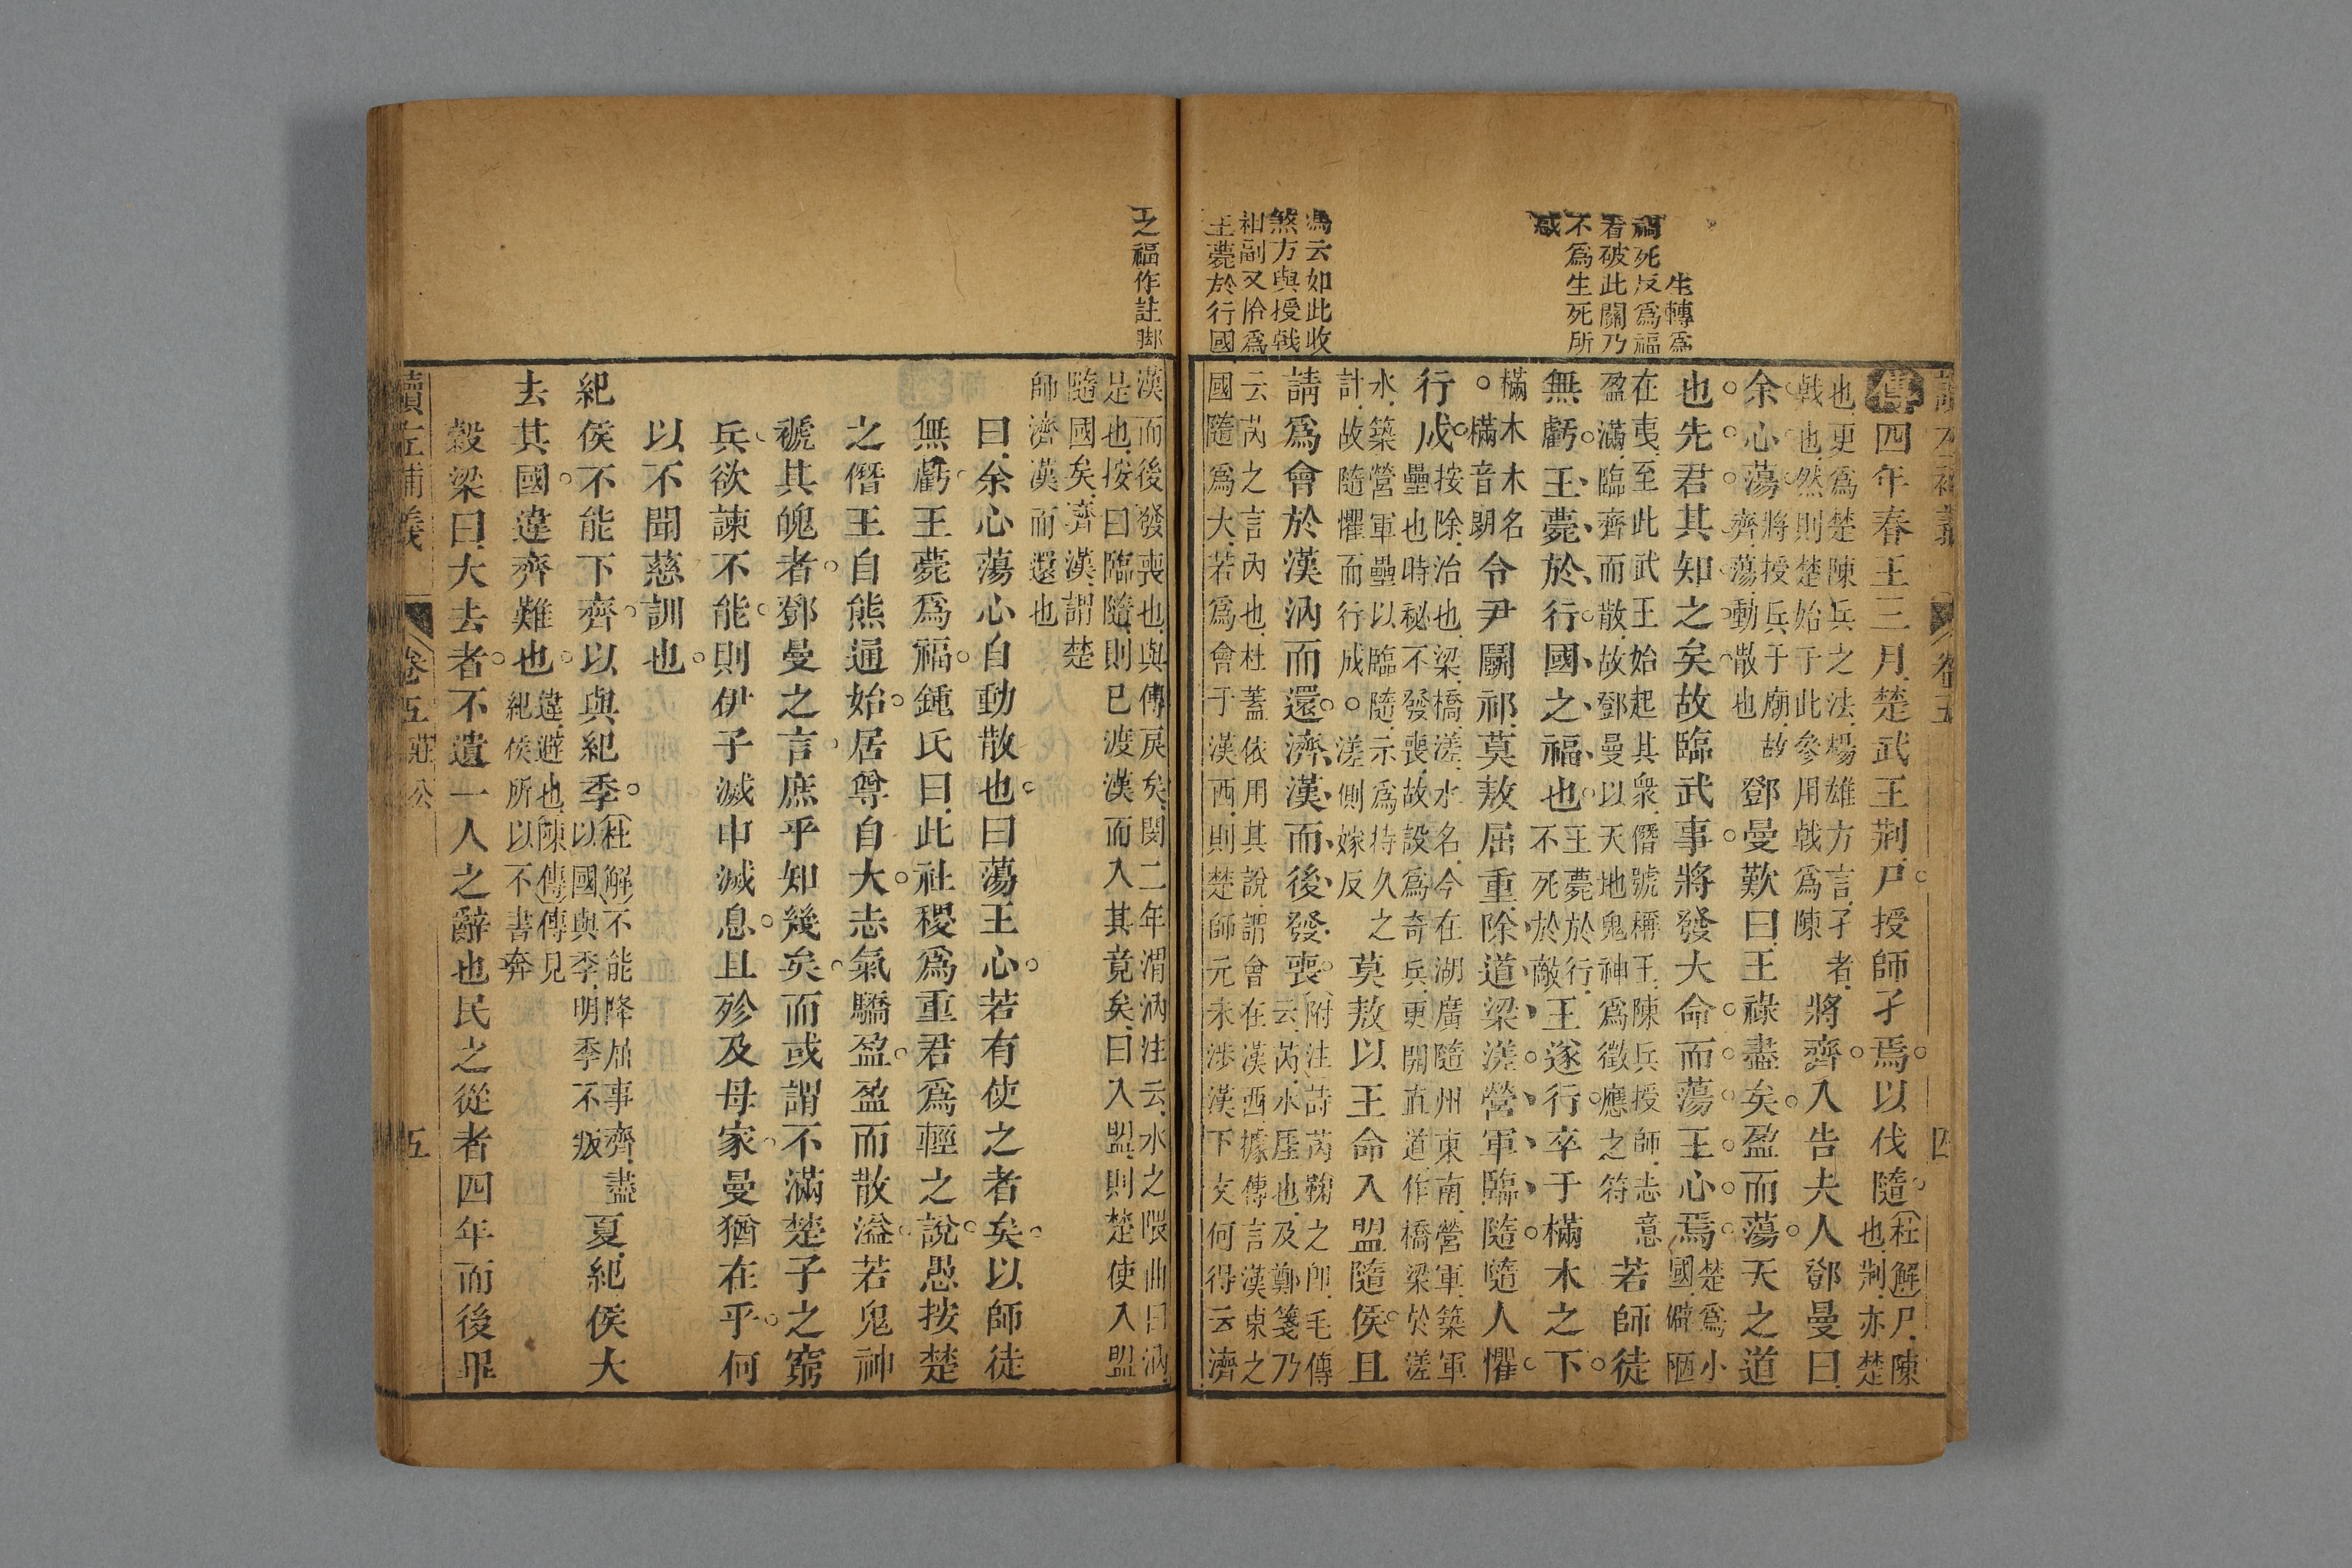 生轉為
禍死反為福
看破此關乃
不為生死所
惑
馮云如此收
煞方與授戟
相副又恰為
王薨於行國
卷五 四
傳四年春王三月楚武王荆尸授師孑焉以伐隨 杜解尸陳
也荆亦楚
也更為楚陳兵之法揚雄方言孑者
戟也然則楚始于此參用戟為陳 將齊入告夫人鄧曼曰
余心蕩 將授兵于廟故
齊蕩動散也 鄧曼歎曰王祿盡矣盈而蕩天之道
也先君其知之矣故臨武事將發大命而蕩王心焉 楚為小
國僻陋
在夷至此武王始起其衆僭號稱王陳兵授師志意
盈滿臨齊而散故鄧曼以天地鬼神為徵應之符 若師徒
無虧王薨於行國之福也 王薨於行
不死於敵 王遂行卒于樠木之下
樠木木名
。樠音朗 令尹鬬祁莫敖屈重除道梁溠營軍臨隨隨人懼
行成 按除治也梁橋溠水名今在湖廣隨州東南營軍築軍
壘也時秘不發喪故設為奇兵更開直道作橋梁於溠
水築營軍壘以臨隨示為持久之
計故隨懼而行成。溠側嫁反 莫敖以王命入盟隨侯且
請為會於漢汭而還濟漢而後發喪 附注詩芮鞫之卽毛傳
云芮水厓也及鄭箋乃
云芮之言內也杜蓋依用其說謂會在漢西據傳言漢東之
國隨為大若為會于漢西則楚師元未渉漢下文何得云濟
之福作註脚
漢而後發喪也與傳戾矣閔二年渭汭注云水之隈曲曰汭
是也按曰臨隨則已渡漢而入其竟矣曰入盟則楚使入盟
隨國矣齊漢謂楚
師濟漢而還也
曰余心蕩心自動散也曰蕩王心若有使之者矣以師徒
無虧王薨為福鍾氏曰此社稷為重君為輕之說愚按楚
之僭王自熊通始居尊自大志氣驕盈盈而散溢若鬼神
褫其魄者鄧曼之言庶乎知幾矣而或謂不滿楚子之窮
兵欲諫不能則伊子滅申滅息且殄及母家曼猶在乎何
以不聞慈訓也
紀侯不能下齊以與紀季 杜解不能降屈事齊盡
以國與季明季不叛 夏紀侯大
去其國違齊難也 違避也陳傳傳見
紀侯所以不書奔
穀梁曰大去者不遺一人之辭也民之從者四年而後畢
讀左補義 卷五 莊公 五